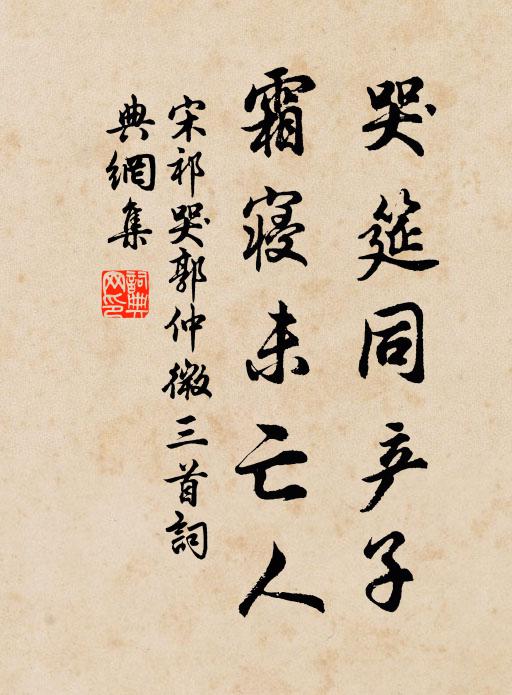 哭筵同产子
霜寝未亡人
宋祁哭郭仲微三首詞
典網集
詞典网印